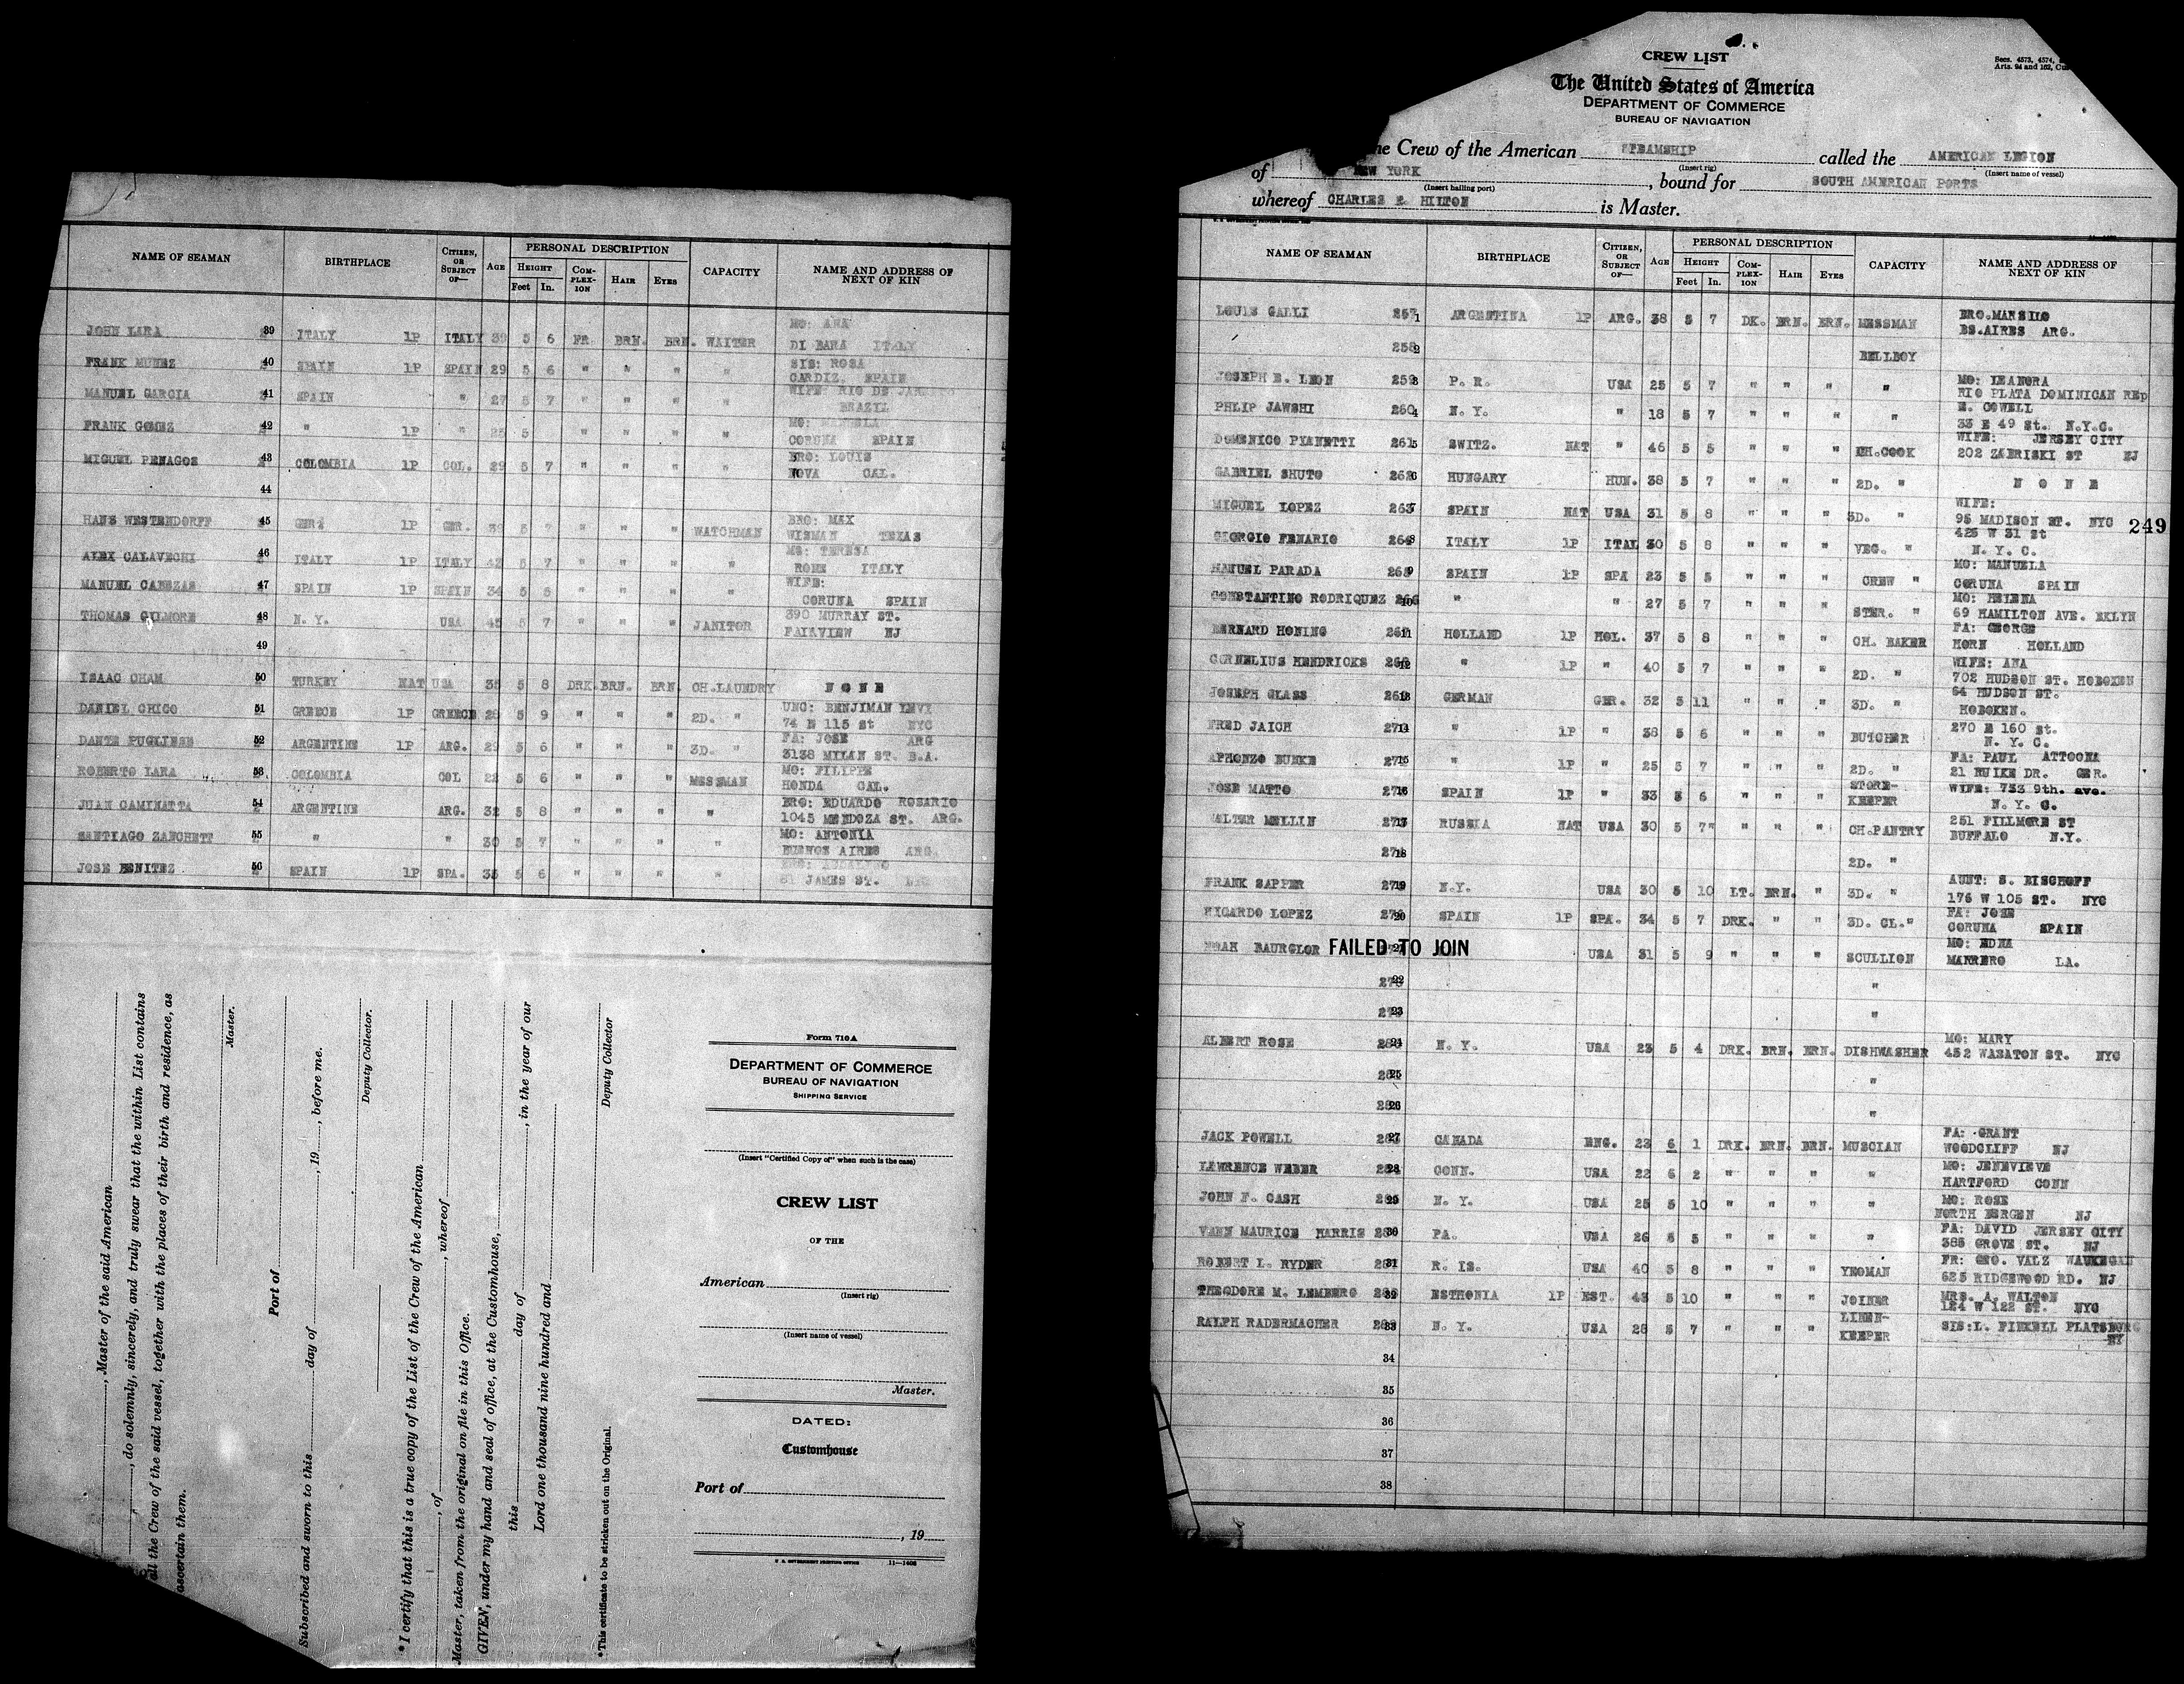 NAME OF SEAMAN BIRTHPLACE CITIZEN, OR SUBJECT OF— AGE PERSONAL DESCRIPTION CAPACITY NAME AND ADDRESS OF NEXT OF KIN
HEIGHT COM- PLEX- ION HAIR EYES
Feet In.
JOHN LARA 39 ITALY 1P ITALY 39 5 6 FR. BRN. BRN. WAITER MO: ANA
DI BARA ITALY
FRANK MUNEZ 40 SPAIN 1P SPAIN 29 5 6 " " " " SIS: ROSA
CARDIZ, SPAIN
MANUEL GARCIA 41 SPAIN " 27 5 7 " " " " WIFE: RIO DE JAN.
BRAZIL
FRANK GOMEZ 42 " 1P " 25 5 " " " " MO:
CORUNA SPAIN
MIGUEL PENAGOS 43 COLOMBIA 1P COL. 29 5 7 " " " " BRO: LOUIS
NOVA CAL.
44
HANS WESTENDORFF 45 GER. 1P GER. 39 5 7 " " " WATCHMAN BRO: MAX
WISMAN TEXAS
ALEX CALAVECHI 46 ITALY 1P ITALY 42 5 7 " " " " MO: TERESA
ROME ITALY
MANUEL CABEZAS 47 SPAIN 1P SPAIN 34 5 8 " " " " WIFE:
CORUNA SPAIN
THOMAS GILMORE 48 N. Y. USA 45 5 7 " " " JANITOR 390 MURRAY ST.
FAIRVIEW NJ
49
ISAAC CHAM 50 TURKEY NAT USA 35 5 8 DRK. BRN. BRN. CH.LAUNDRY N O N E
DANIEL CHICO 51 GREECE 1P GREECE 29 5 9 " " " 2D. " UNC: BENJIMAN LEVY
74 E 115 St NYC
DANTE PUGLIESE 52 ARGENTINE 1P ARG. 29 5 6 " " " 3D. " FA: JOSE ARG
3138 MILAN ST. B.A.
ROBERTO LARA 53 COLOMBIA COL 22 5 6 " " " MESSMAN MO: FILIPPE
HONDA CAL.
JUAN CAMINATTA 54 ARGENTINE ARG. 32 5 8 " " " " BRO: EDUARDO ROSARIO
1045 MENDOZA ST. ARG.
SANTIAGO ZANCHETT 55 " " 30 5 7 " " " " MO: ANTONIA
BUENOS AIRES ARG.
JOSE BENITEZ 56 SPAIN 1P SPA. 35 5 6 " " " "
81 JAMES ST. NYC
, Master of the said American
, do solemnly, sincerely, and truly swear that the within List contains
all the Crew of the said vessel, together with the places of their birth and residence, as
ascertain them.
Master.
Port of
Subscribed and sworn to this day of , 19 , before me.
Deputy Collector.
*I certify that this is a true copy of the List of the Crew of the American
, of , whereof
Master, taken from the original on file in this Office.
GIVEN, under my hand and seal of office, at the Customhouse,
this day of , in the year of our
Lord one thousand nine hundred and
Deputy Collector
*This certificate to be stricken out on the Original.
Form 710A
DEPARTMENT OF COMMERCE
BUREAU OF NAVIGATION
SHIPPING SERVICE
(Insert "Certified Copy of" when such is the case)
CREW LIST
OF THE
American
(Insert rig)
(Insert name of vessel)
Master.
DATED:
Customhouse
Port of
, 19
U. S. GOVERNMENT PRINTING OFFICE 11—1406
CREW LIST
Secs. 4573, 4574,
Arts. 94 and 162, Cu
The United States of America
DEPARTMENT OF COMMERCE
BUREAU OF NAVIGATION
he Crew of the American STEAMSHIP called the AMERICAN LEGION
(Insert rig) (Insert name of vessel)
of NEW YORK , bound for SOUTH AMERICAN PORTS
(Insert hailing port)
whereof CHARLES E. HILTON is Master.
NAME OF SEAMAN BIRTHPLACE CITIZEN, OR SUBJECT OF— AGE PERSONAL DESCRIPTION CAPACITY NAME AND ADDRESS OF NEXT OF KIN
HEIGHT COM- PLEX- ION HAIR EYES
Feet In.
LOUIS GALLI 257 1 ARGENTINA 1P ARG. 38 5 7 DK. BRN. BRN. MESSMAN BRO.MANSILO
BS.AIRES ARG.
258 2 BELLBOY
JOSEPH E. LEON 259 3 P. R. USA 25 5 7 " " " " MO: LEANORA
RIO PLATA DOMINICAN REP
PHLIP JAWSHI 260 4 N. Y. " 18 5 7 " " " " E. COWELL
33 E 49 St. N.Y.C.
DOMENICO PIANETTI 261 5 SWITZ. NAT " 46 5 5 " " " CH.COOK WIFE: JERSEY CITY
202 ZABRISKI ST NJ
GABRIEL SHUTO 262 6 HUNGARY HUN. 38 5 7 " " " 2D. " N O N E
MIGUEL LOPEZ 263 7 SPAIN NAT USA 31 5 8 " " " 3D. " WIFE:
95 MADISON ST. NYC
249
GIORGIO FENARIO 264 8 ITALY 1P ITAL 30 5 8 " " " VEG. " 425 W 31 St
N. Y. C.
MANUEL PARADA 265 9 SPAIN 1P SPA 23 5 5 " " " CREW " MO: MANUELA
CORUNA SPAIN
CONSTANTINO RODRIQUEZ 266 10 " " 27 5 7 " " " STER. " MO: HELENA
69 HAMILTON AVE. BKLYN
BERNARD HONING 267 11 HOLLAND 1P HOL. 37 5 8 " " " CH. BAKER FA: GEORGE
HORN HOLLAND
CORNELIUS HENDRICKS 268 12 " 1P " 40 5 7 " " " 2D. " WIFE: ANA
702 HUDSON ST. HOBOKEN
JOSEPH GLASS 13 GERMAN GER. 32 5 11 " " " 3D. " 64 HUDSON ST.
HOBOKEN.
FRED JAICH 14 " 1P " 38 5 6 " " " BUTCHER 270 E 160 St.
N. Y. C.
APHONZO BUNKE 15 " 1P " 25 5 7 " " " 2D. " FA: PAUL ATTOONA
21 RUIKE DR. GER.
JOSE MATTO 16 SPAIN 1P " 33 5 6 " " " STORE-
KEEPER WIFE: 753 9th. ave.
N. Y. C.
WALTER MELLIN 17 RUSSIA NAT USA 30 5 7" " " " CH.PANTRY 251 FILLMORE ST
BUFFALO N.Y.
18 2D. "
FRANK SAPPER 19 N.Y. USA 30 5 10 LT. BRN. " 3D. " AUNT: S. BISCHOFF
176 W 105 ST. NYC
RICARDO LOPEZ 20 SPAIN 1P SPA. 34 5 7 DRK. " " 3D. CL." FA: JOSE
CORUNA SPAIN
NOAH BAURGLOR FAILED TO JOIN USA 31 5 9 " " " SCULLION MO: EDNA
MARRERO LA.
22 "
23 "
ALBERT ROSE 24 N. Y. USA 23 5 4 DRK. BRN. BRN. DISHWASHER MO: MARY
452 WASATON ST. NYC
25 "
26 "
JACK POWELL 27 CANADA ENG. 23 6 1 DRK. BRN. BRN. MUSCIAN FA: GRANT
WOODCLIFF NJ
LAWRENCE WEBER 28 CONN. USA 22 6 2 " " " " MO: JENEVIEVE
HARTFORD CONN
JOHN F. CASH 29 N. Y. USA 25 5 10 " " " " MO: ROSE
NORTH BERGEN NJ
VANN MAURICE HARRIS 30 PA. USA 26 5 5 " " " " FA: DAVID JERSEY CITY
385 GROVE ST. NJ
ROBERT L. RYDER 31 R. IS. USA 40 5 8 " " " YEOMAN FR: GEO. VALZ WAUKEGAN
625 RIDGEWOOD RD. NJ
THEODORE M. LEMBERG 32 ESTHONIA 1P EST. 43 5 10 " " " JOINER MRS. A. WALTON
124 W 122 ST. NYC
RALPH RADERMACHER 33 N. Y. USA 28 5 7 " " " LINEN-
KEEPER SIS:L. FINKELL PLATSBURG
NY
34
35
36
37
38